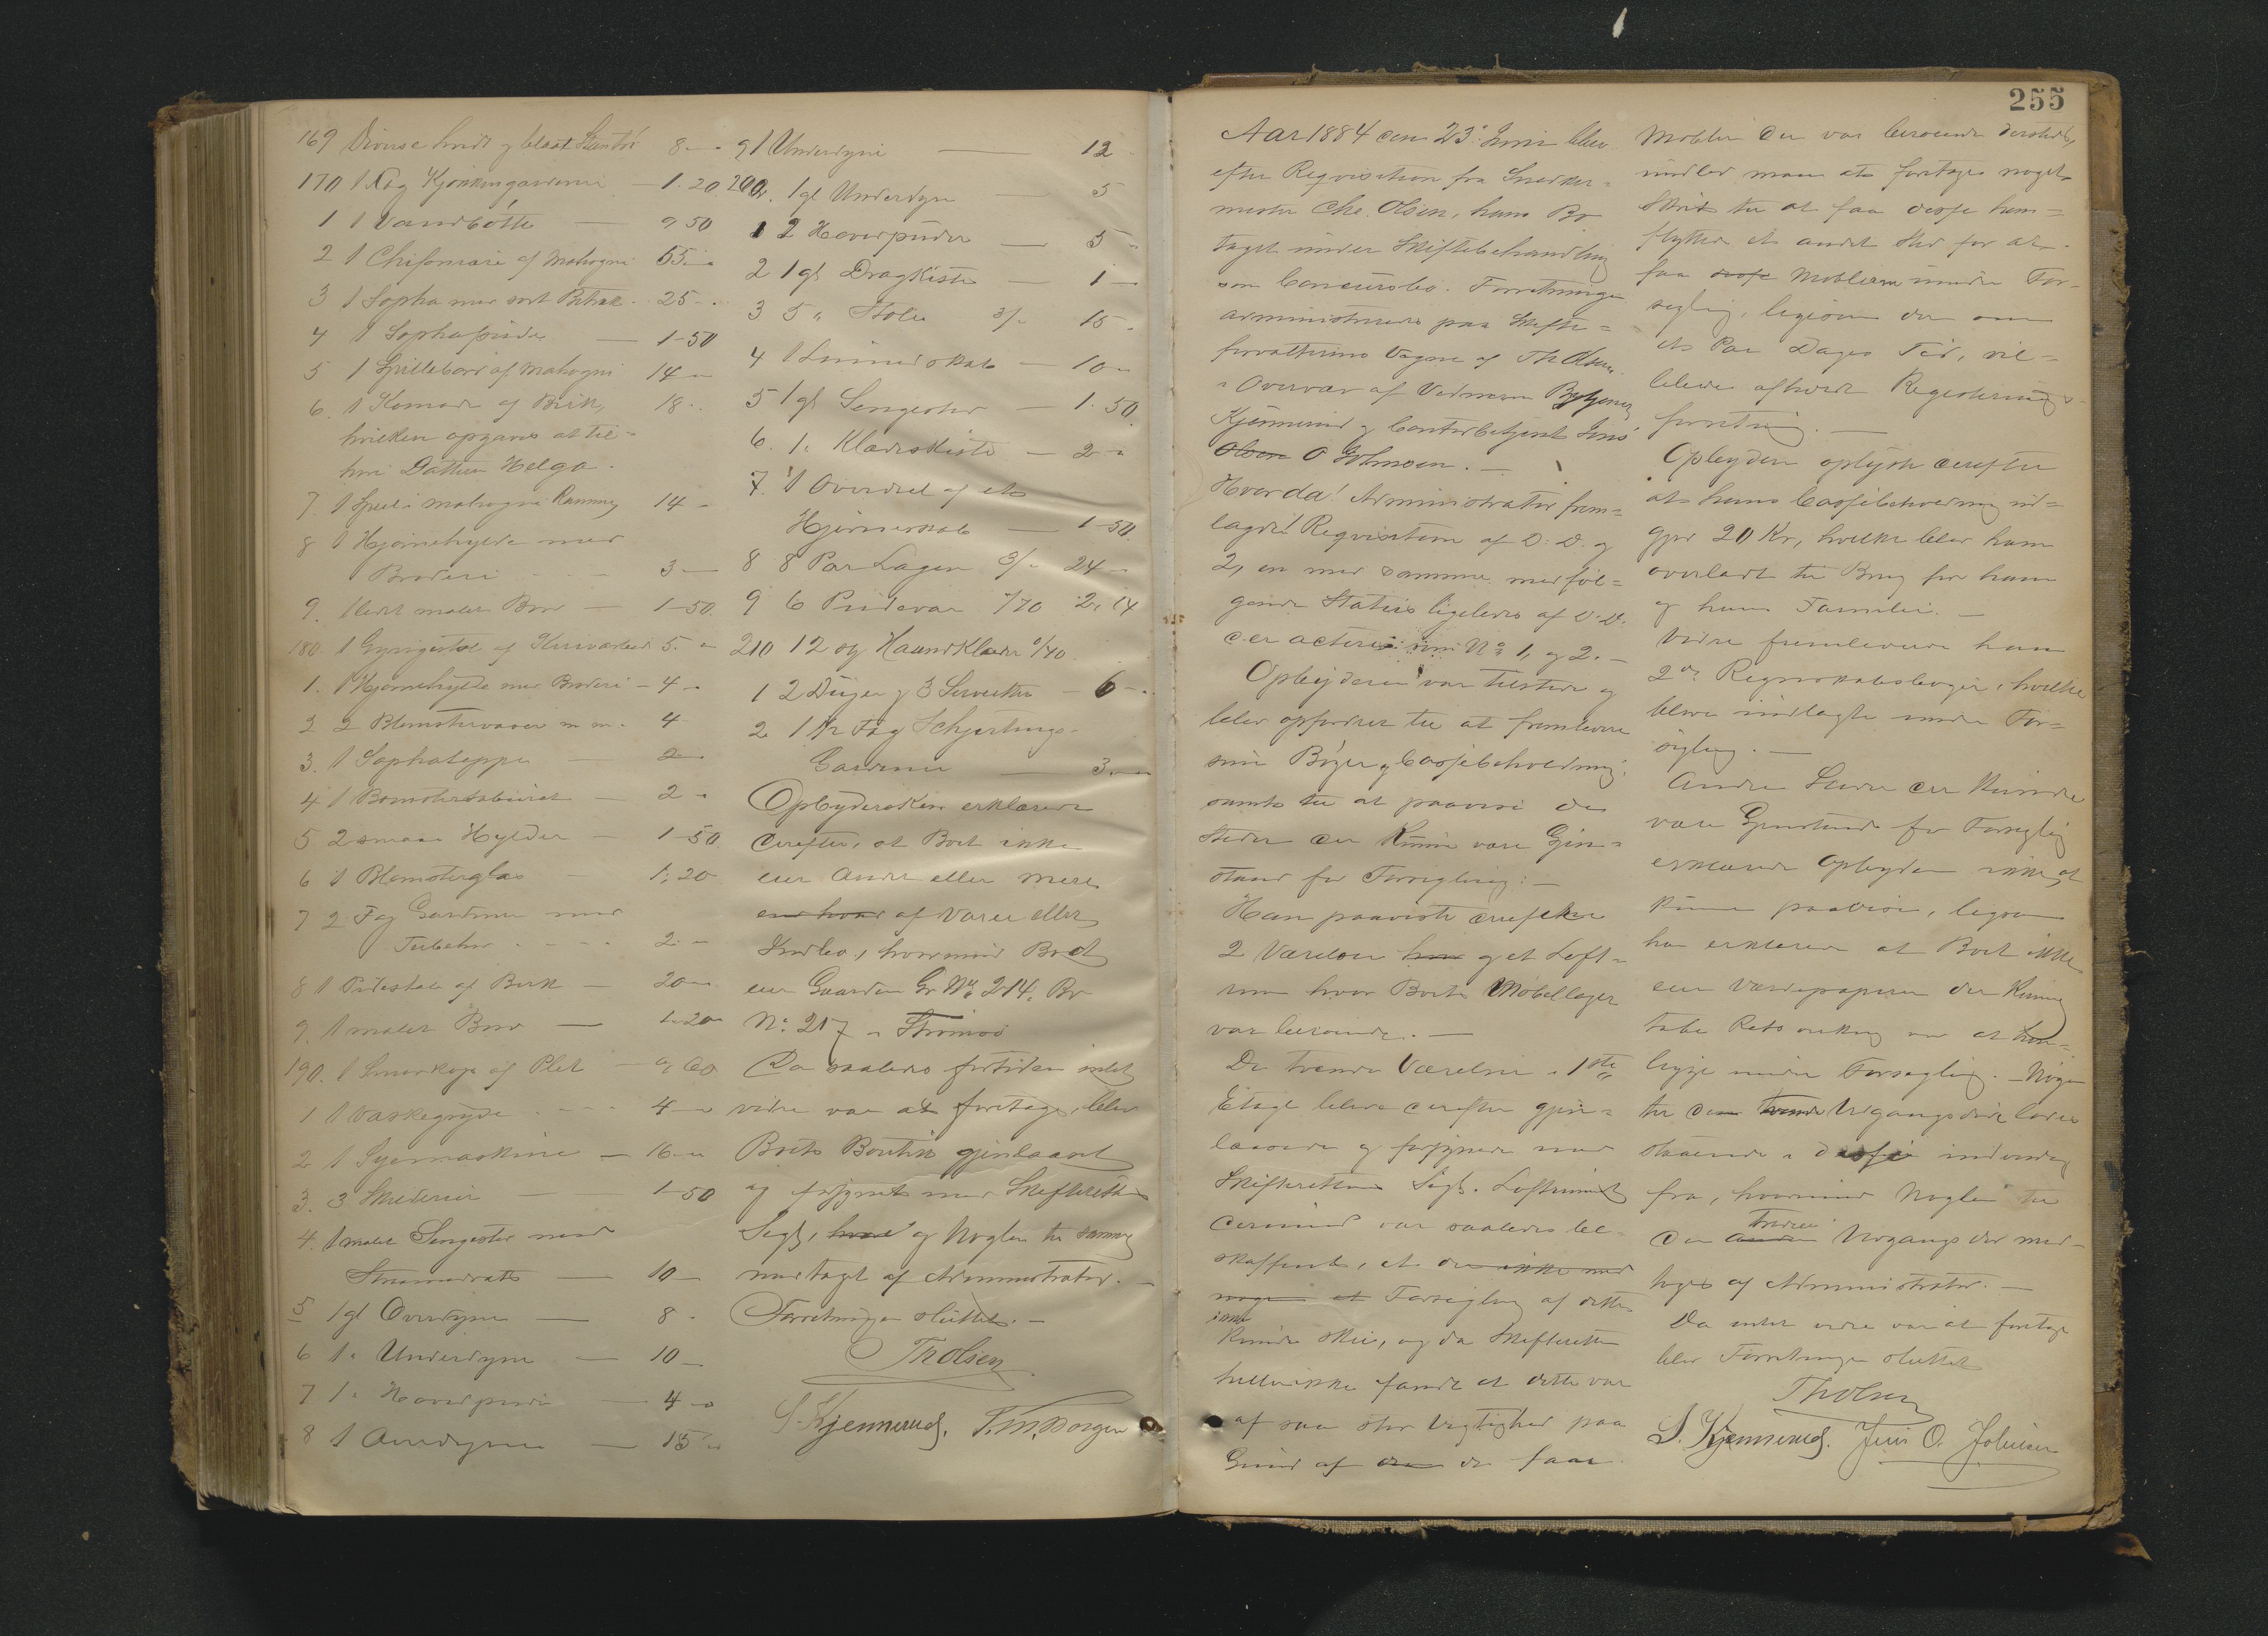 169 Diverse hvidt og blaat Stentöi 8 -
170 1 Fag Kjökkengardiner - 1. 20
1 1 Vandbötte - 50
2 1 Chifoniere af Mahogni 55 -
3 1 Sopha med sort Betræk - 25 -
4 1 Sophapude - 1-50
5 1 Spillebord af Mahogni 14 -
6. 1 Komode af Birk, 18 -
hvilken opgaves at til-
höre Datteren Helga.
7. 1 Speil i Mahogni Ramme 14 -
8 1 Hjörnehylde med
Broderi - - 3 -
9. 1 lidet malet Bord - 1-50.
180 1 Gyngestol af Kurvarbeid 5. -
1. 1 Hjörnehylde med Broderi - 4 -
2 2 Blomstervaser m m. 4
3. 1 Sophateppe - 2 -
4 1 Blomstertabouret - 2 -
5 2 smaa Hylder - 1-50.
6 1 Blomsterglas - 1, 20
7 2 Fag Gardiner med
Tilbehör - - - 2 -
8 1 Pidestal af Birk - 20 -
9. 1 malet Bord - 1-20
190. 1 Smörkop af Plet - 60
1 1 Vaskegryde - - - 4 -
2 1 Syemaskine - 16 -
3. 3 Skilderier - 1-50
4. 1 malet Sengested med
Straamadrats - 10 -
5 1 gl Overdyne - 8 -
6 1 " Underdyne - 10 -
7 1 " Hovedpude - 4 -
8 1 Overdyne - 15 -
9 1 Underdyne - 12
200. 1 gl Underdyne - 5
1 2 Hovedpuder - 5 -
2 1 gl Dragkiste - 1 -
3 5 " Stole 3/- 15 -
4 1 Linnedskab - 10 -
5 1 gl Sengested - 1. 50.
6. 1 " Klædeskiste - 2 -
7. 1 Overdel af et
Hjörneskab - 1-50.
8 8 Par Lagen 3/- 24 -
9 6 Pudevar
210 12 og Haandklæder
1 2 Duger og 3 Servietter - 6 -
2 1 Fag Schjertings-
Gardiner - 3. -
Opbyderskens erklærede
derefter, at Boet ikke
eier andet eller mere
end hvad af Varer eller
Indbo, hvorimod Boet
eier Gaarden Gr No 214. Br
No. 217 - Strömsö
Da saaledes fortiden intet
videre var at foretage, blev
Boets Boutik gjenlaaset
og forsynet med Skifterettens
Segl, hvad og Nöglen til samme
modtaget af Administrator. -
Forretningen sluttet. -
Th Olsen
S. Kjennerud. Borgen
255
Aar 1884 den 23de Juni blev
efter Reqvisition fra Snedker-
mester Chr. Olsen, hans Bo
taget under Skiftebehandling
som Concursbo. Forretningen
administreredes paa Skifte-
forvalterens Vegne af Th Olsen
i Overvær af Vidnerne
Kjennerud og Contorbetjent Jens
Olsen O Johnsen. -
Hvorda! Administrator frem-
lagde! Reqvisition af D. D. og
2, en med samme medföl-
gende Status ligeledes af D. D.
der acteres som No 1, og 2. -
Opbyderen var tilstede og
blev opfordret til at fremlevere
sine Böger og Cassebeholdning,
samt til at paavise de
Steder der kunne være Gjen-
stand for Forsegling: -
Han paaviste derefter
2 Værelser hvor og et Loft-
rum hvor Boets Möbellager
var beroende. -
De tvende Værelser i 1ste
Etage bleve derefter gjen-
laasede og forsynede med
Skifterettens Segl. Loftrummet
derimod var saaledes be-
skaffent, at der ikke med
nogen at Forsegling af dette
ikke
kunde skee, og da Skifteretten
hellerikke fandt at dette var
af saa stor Vigtighed paa
Grund af den de faae
Möbler der var beroende dersteds,
undlod man at foretage noget
Skridt til at faa disse hen-
flyttede et andet Sted for at
faa disse Möblerne under For-
segling, ligesom der om
et Par Dages Tid, vil
blive afholdt Registrerings-
forretning. -
Opbyderen oplyste derefter
at hans Cassebeholdning ud-
gjör 20 Kr, hvilke blev ham
overladt til Brug for ham
og hans Familie. -
Videre fremleverede han
2de Regnskabsböger, hvilke
bleve indlagte under For-
segling. -
Andre Steder der kunde
være Gjenstand for Forsegling
erklærede Opbyderen ikke at
kunne paavise, ligesom
han erklærede at Boet ikke
eier Værdipapirer der kunne
om at hen-
ligge under Forsegling. - Nögle
til den Udgangsdör lodes
staaende i indvendig
fra, hvorimod Nöglen til
tredie
den anden Udgangsdör med-
toges af Administrator. -
Da intet videre var at foretage
blev Forretningen sluttet
Th Olsen
S. Kjennerud. Jens O. Johnsen